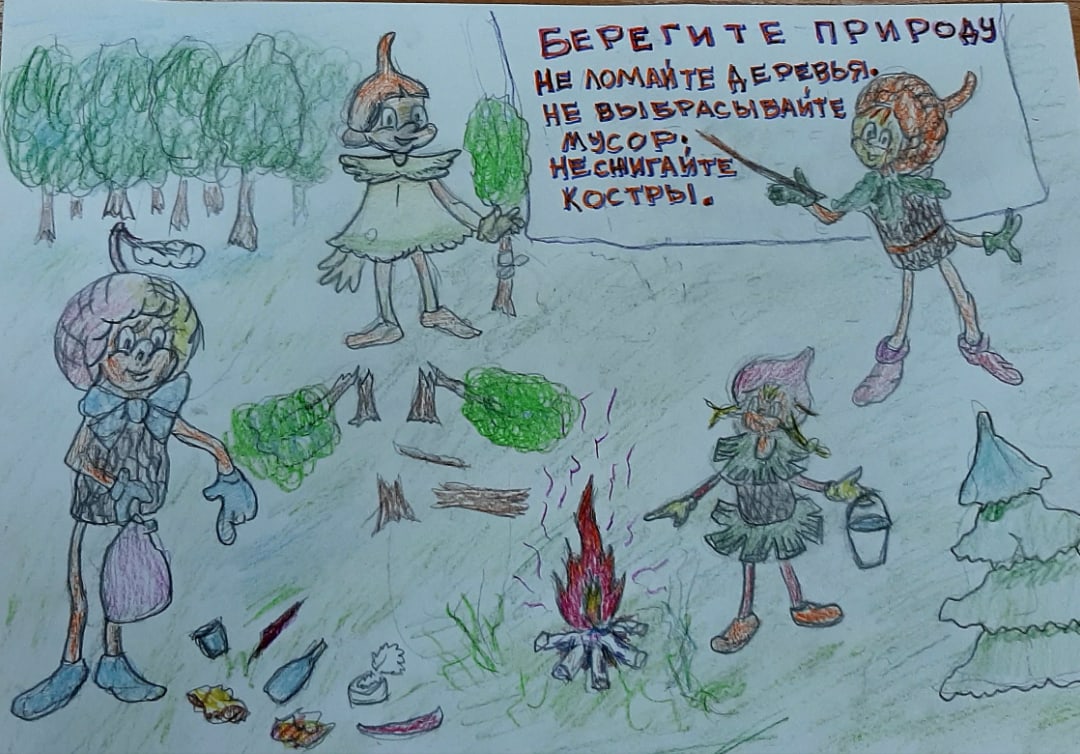 БЕРЕГИТЕ ПРИРОДУ
НЕ ЛОМАЙТЕ ДЕРЕВЬЯ.
НЕ ВЫБРАСЫВАЙТЕ
МУСОР.
НЕ СЖИГАЙТЕ
КОСТРЫ.